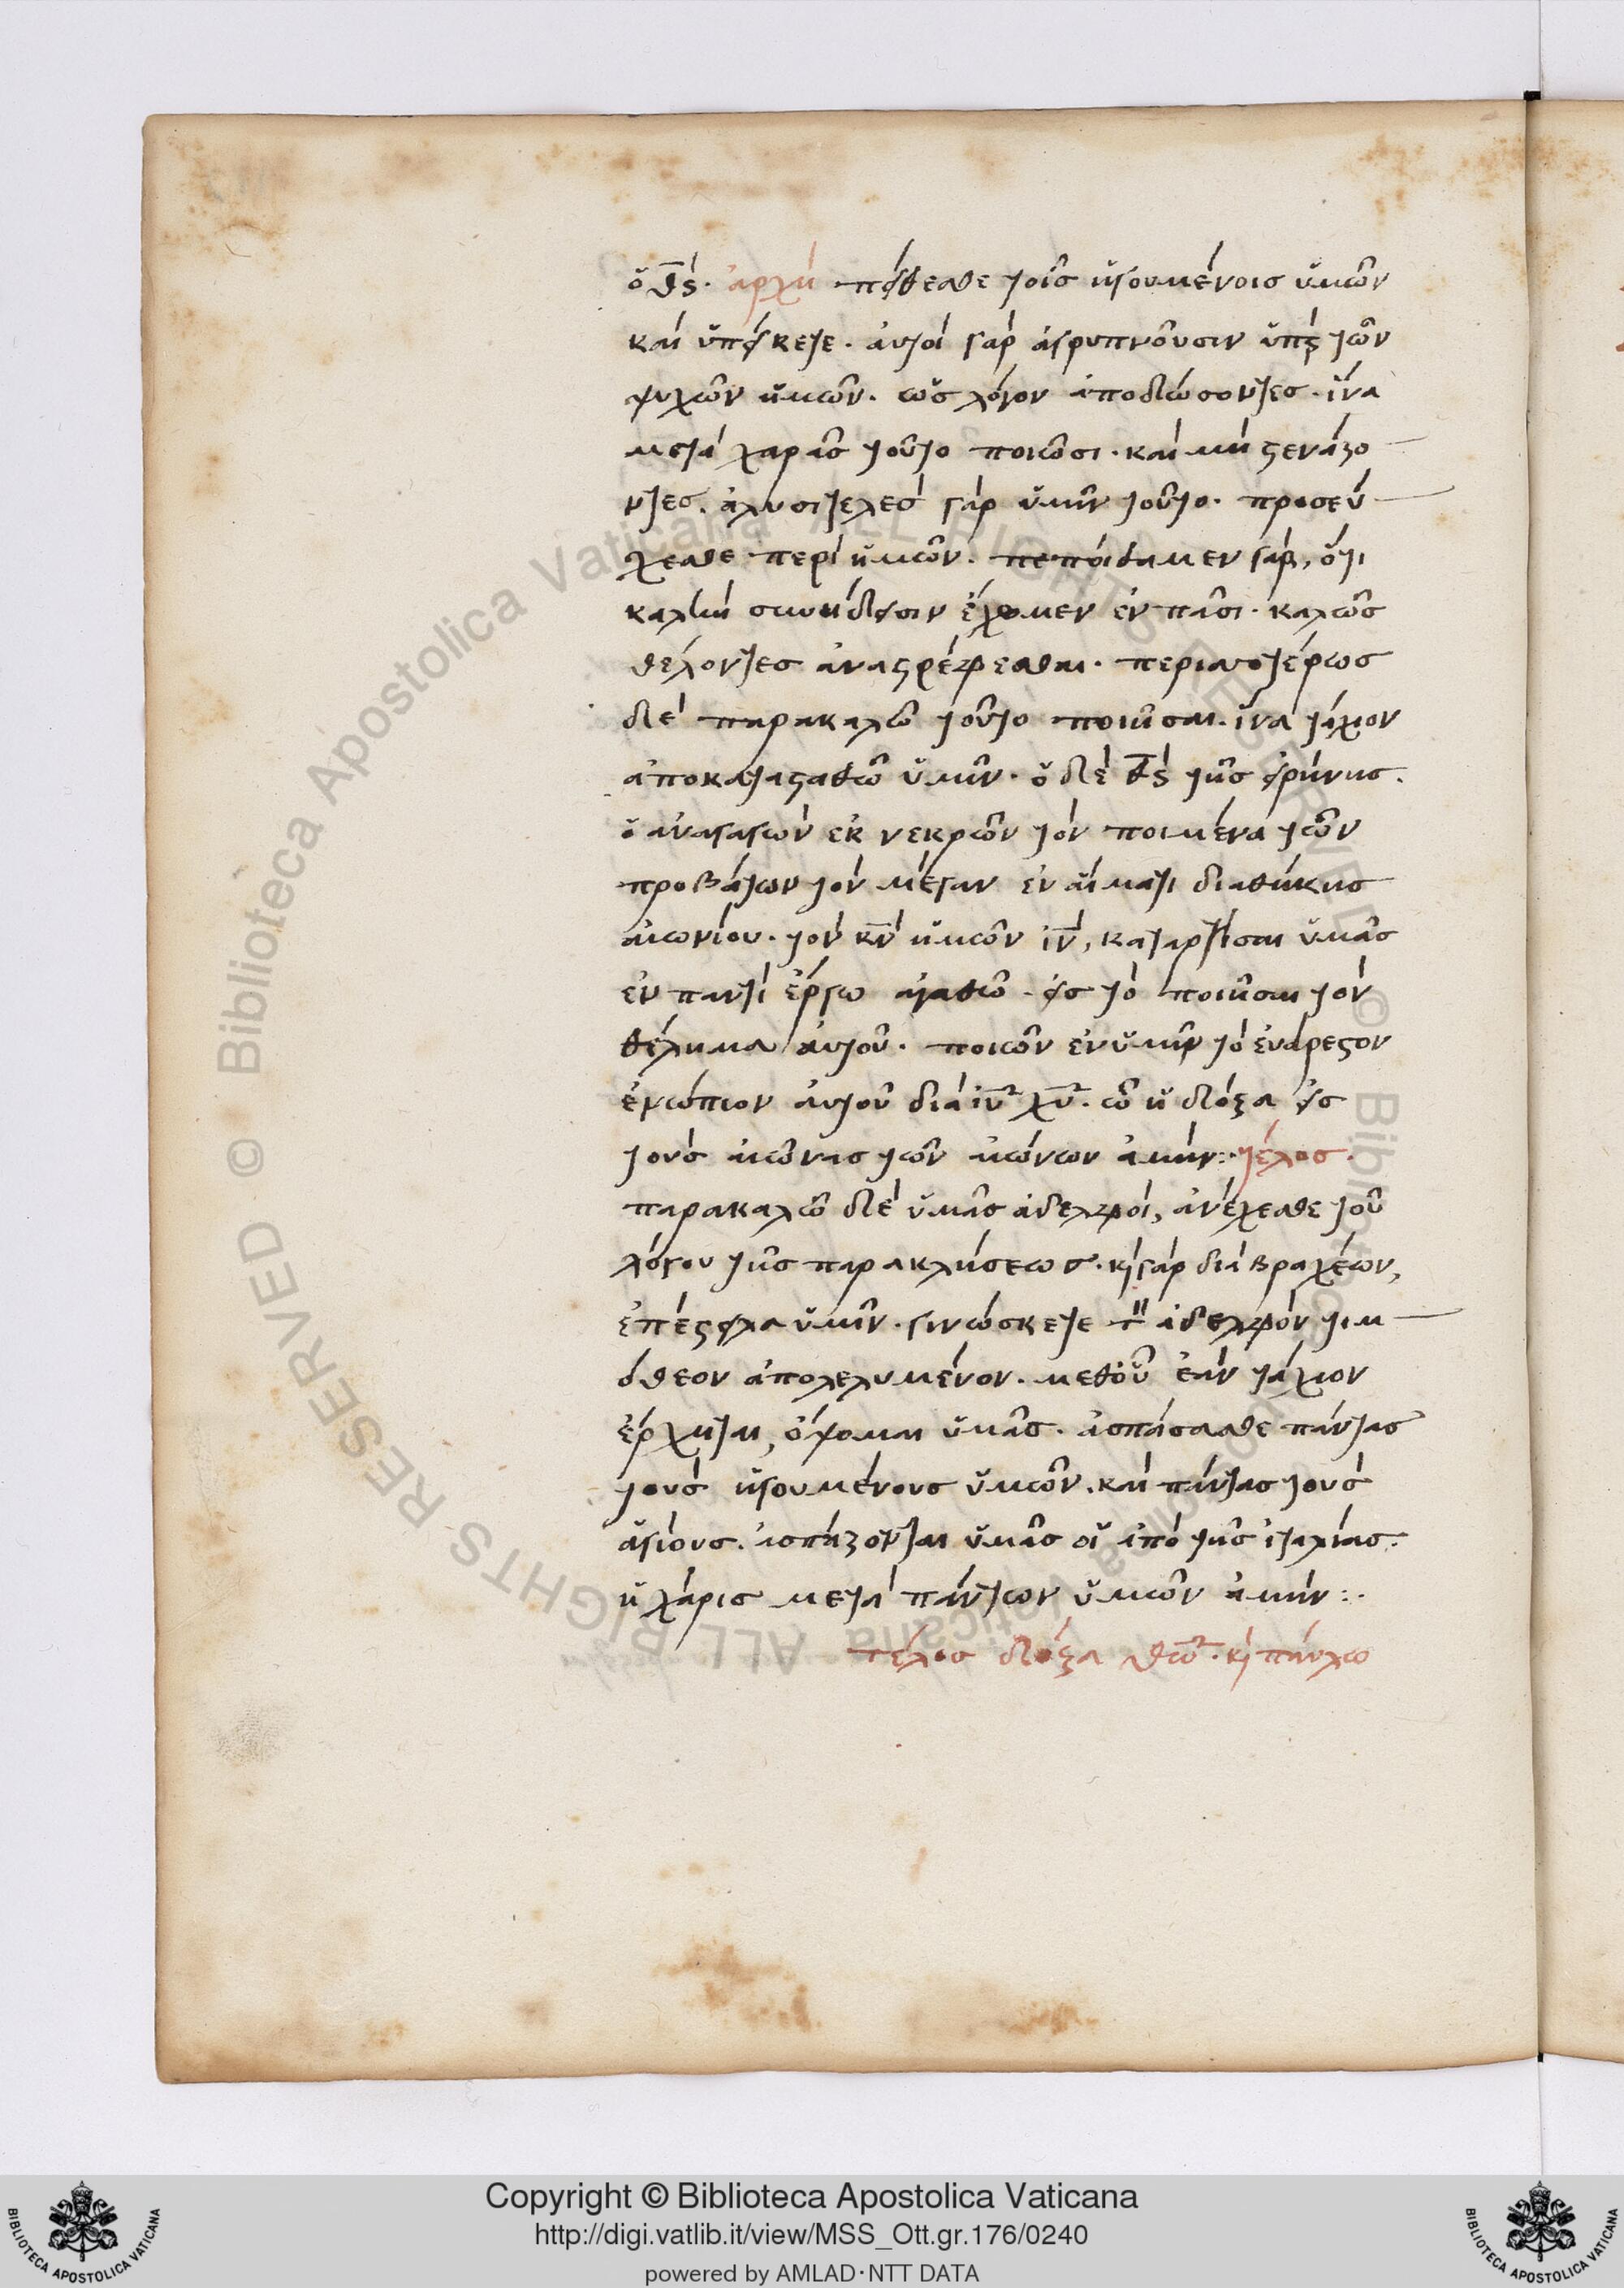 ὁ θς. ἀρχὴ πείθεσθε τοῖς ἡγουμένοις ὑμῶν
καὶ ὑπείκετε. αὐτοὶ γὰρ ἀγρυπνοῦσιν ὑπὲρ τῶν
ψυχῶν ἡμῶν. ὡς λόγον ἀποδώσοντες. ἵνα
μετὰ χαρᾶς τοῦτο ποιῶσι. καὶ μὴ στενάζο
ντες. ἀλυσιτελὲς γὰρ ὑμῖν τοῦτο. προσεύ
χεσθε περὶ ἡμῶν. πεποίθαμεν γὰρ, ὅτι
καλὴν συνείδησιν ἔχομεν ἐν πᾶσι. καλῶς
θέλοντες ἀναστρέφεσθαι. περισσοτέρως
δὲ παρακαλῶ τοῦτο ποιῆσαι. ἵνα τάχιον
ἀποκατασταθῶ ὑμῖν. ὁ δὲ θς τῆς εἰρήνης.
ὁ ἀναγαγὼν ἐκ νεκρῶν τὸν ποιμένα τῶν
προβάτων τὸν μέγαν ἐν αἵματι διαθήκης
αἰωνίου. τὸν κν ἡμῶν ιν, καταρτίσαι ὑμᾶς
ἐν παντὶ ἔργω ἀγαθῶ. εἰς τὸ ποιῆσαι τὸν
θέλημα αὐτοῦ. ποιῶν ἐν ὑμῖν τὸ εὐάρεστον
ἐνώπιον αὐτοῦ διὰ ιυ χυ. ὧ ἡ δόξα εἰς
τοὺς αἰῶνας τῶν αἰώνων ἀμήν:· τέλος.
παρακαλῶ δὲ ὑμᾶς ἀδελφοί, ἀνέχεσθε τοῦ
λόγου τῆς παρακλήσεως. κ γὰρ διὰ βραχέων,
ἐπέστειλα ὑμῖν. γινώσκετε τὸν ἀδελφὸν τιμ
όθεον ἀπολελυμένον. μεθ' οὗ ἐὰν τάχιον
ἔρχηται, ὄψομαι ὑμᾶς. ἀσπάσασθε πάντας
τοὺς ἡγουμένους ὑμῶν. καὶ πάντας τοὺς
ἁγίους. ἀσπάζονται ὑμᾶς οἱ ἀπὸ τῆς ἰταλίας.
ἡ χάρις μετὰ πάντων ὑμῶν ἀμήν:·
τέλος δόξα θω. κ παύλω
© Biblioteca Apostolica Vaticana ALL RIGHTS RESERVED © Biblioteca Apostolica Vaticana ALL RIGHTS RESERVED
Copyright © Biblioteca Apostolica Vaticana
http://digi.vatlib.it/view/MSS_Ott.gr.176/0240
powered by AMLAD·NTT DATA
BIBLIOTECA APOSTOLICA VATICANA
BIBLIOTECA APOSTOLICA VATICANA